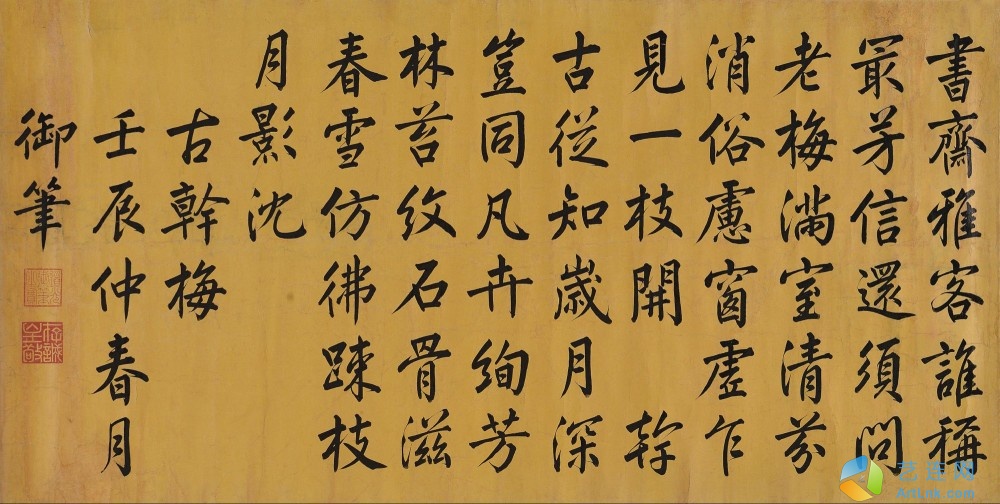 書齋雅客誰稱
最芳信還須問
老梅滿室清芬
消俗慮窗虛乍
見一枝開 幹
古從知歲月深
豈同凡卉絢芳
林苔紋石骨滋
春雪仿彿踈枝
月影沈
古幹梅
壬辰仲春月
御筆
存誠主敬
艺连网
ArtLnk.com